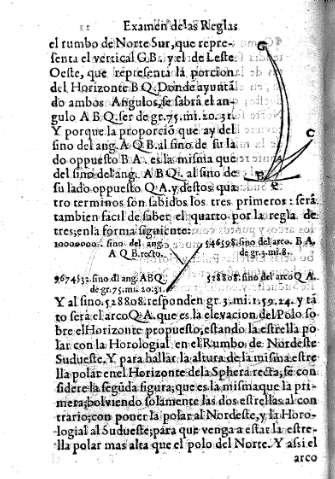 12 Examen de las Reglas
el rumbo de Norte Sur, que repre-
senta el vertical G.B. y el de Leste
Oeste, que representa la porcion
del Horizonte B Q. Donde ayuntã
do ambos Angulos, se sabrá el an-
gulo A B Q. ser de gr. 75. mi. 20. 31.
Y porque la proporciõ que ay del
sino del ang. A Q B. al sino de su la
do oppuesto B A. es la misma que
del sino del ang. A B Q. al sino de
su lado oppuesto Q A. y destos qua
tro terminos son sabidos los tres primeros: será
tambien facil de saber el quarto por la regla de
tres; en la forma siguiente:
G
C
B
10000000. sino del ang. A Q B. recto.
546598. sino del arco B A. de gr. 3. mi. 8.
9674633. sino dl ang. ABQ. de gr. 75. mi. 20. 31.
528808. sino del arco Q A.
Y al sino. 528808. responden gr. 3. mi. 1. 59. 24. y tã
to será el arco Q A. que es la elevacion del Polo so
bre el Horizonte propuesto; estando la estrella po
lar con la Horologial en el Rumbo de Nordeste
Sudueste. Y para hallar la altura de la misma estre
lla polar en el Horizonte dela Sphera recta, se con
sidere la segũda figura; que es la misma que la pri
mera; bolviendo solamente las dos estrellas al con
trario; con poner la polar al Nordeste, y la Horo-
logial al Sudueste; para que venga a estar la estre-
lla polar mas alta que el polo del Norte. Y assi el
arco